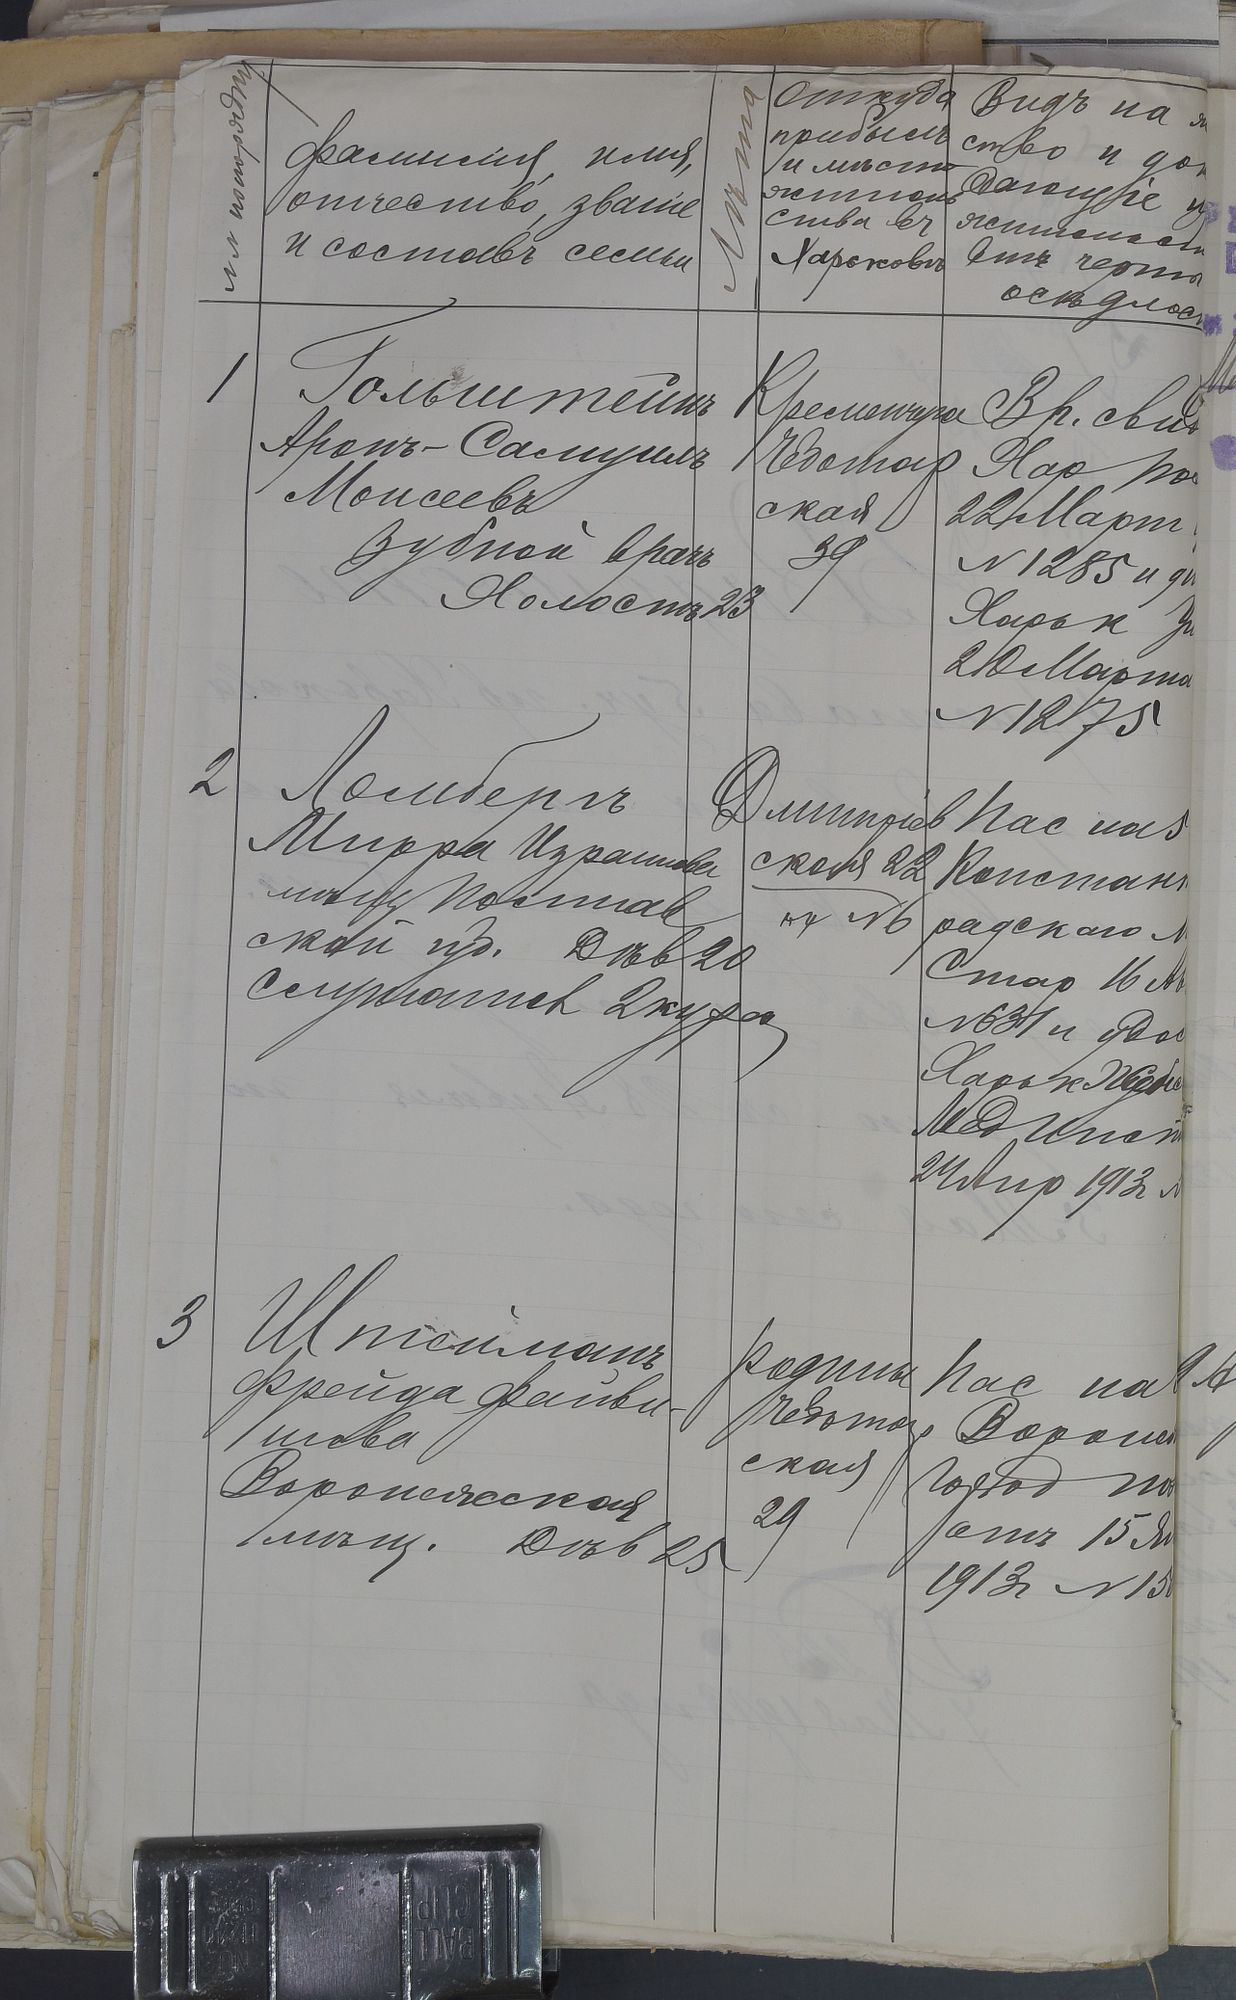 №№ по порядку
Фамилия, имя,
отчество, званіе
и составъ семьи
Лѣта
Откуда
прибылъ
и мѣсто
жительс
ства въ
Харьковѣ
Видъ на ж
ство и док
дающіе
жительств
внѣ черты
осѣдлос
1
Гольштейнъ
Аронъ-Самуилъ
Моисеевъ
Зубной врачъ
Холостъ 23
Кременчуга
Чеботар
ская
39
Вр. свид
Хар
22 Март
N 1285 и ди
Харьк Ун
20 Марта
N 1275
2
Ломбергъ
Мирра Израилева
мѣщ Полтав
ской губ. Дѣв 20
Слушател 2 курса
Дмитріев
ская 22
кв N 6
Пас на 5
Констант
радскаго М
Стар 16
N 631 и удос
Харьк
Мед Инст
24 Апр 1913 г
3
Штейманъ
Фрейда Файви-
шова
Воронежская
мѣщ. Дѣв 25
Родины
Чеботар
ская
29
Пас на
Воронеж
Город
отъ 15 Ян
1913 г N 15
BALL
CLIP